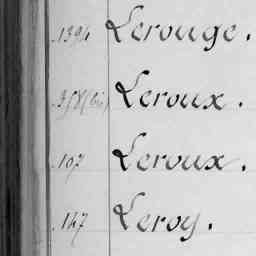 1394 Lerouge.
358(bis) Leroux.
107 Leroux.
147 Leroy.